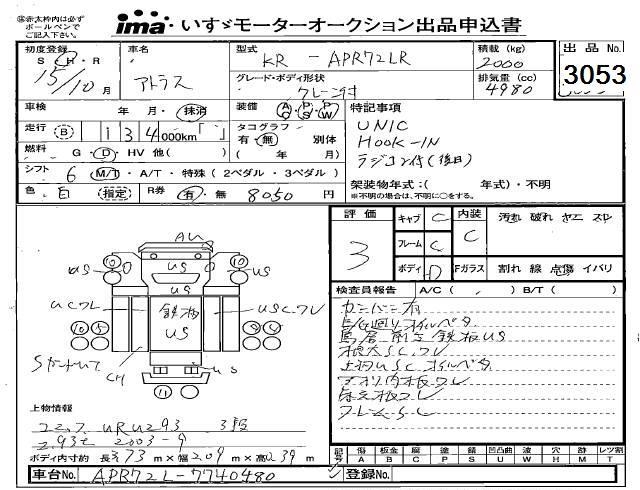 ※太枠内は必ずボールペンでご記入下さい。
ima いすゞモーターオークション出品申込書
初度登録 S H R 15/10 月
車名 アトラス
型式 KR - APR72LR
グレード・ボディ形状 クレーン付
積載(kg) 2000
排気量(cc) 4980
出品No.
3053
車検 年 月・抹消
装備 A/C P/S P/W
特記事項
走行 B 134 000km「 」
タコグラフ 有・無 別体 ( 年 月)
UNIC
HOOK-IN
ラジコン付(後日)
燃料 G・D・HV 他( )
シフト 6 M/T・A/T・特殊(2ペダル・3ペダル)
架装物年式:( 年式)・不明
※不明の場合は、不明に○をする。
色 白 指定 R券 有・無 8050 円
評価 3
キャブ C
フレーム C
ボディ D
内装 C
汚れ 破れ ヤニ スレ
Fガラス 割れ 線 点傷 イバリ
検査員報告 A/C( ) B/T( )
カンバン有
E/G廻りオイルベタ
鳥居 前立 鉄板US
根太SC.ワレ
上物USC オイルベタ
アオリ内板ワレ
床立板ワレ
フレームSC
AW
US
US
US
US
UCワレ
USCワレ
鉄板
US
10
10
10
5
8
4
11
CH
US
上物情報
ユニック URU293 3段
2.93t 2003-9
ボディ内寸約 長 3.73 m×幅 2.09 m×高 0.39 m
記号 傷 A 板金 B 腐 C 塗 P サビ S 凹凸曲 U 波 W 穴 H 跡 M レツ割 T
車台No. APR72L-7740480
登録No.